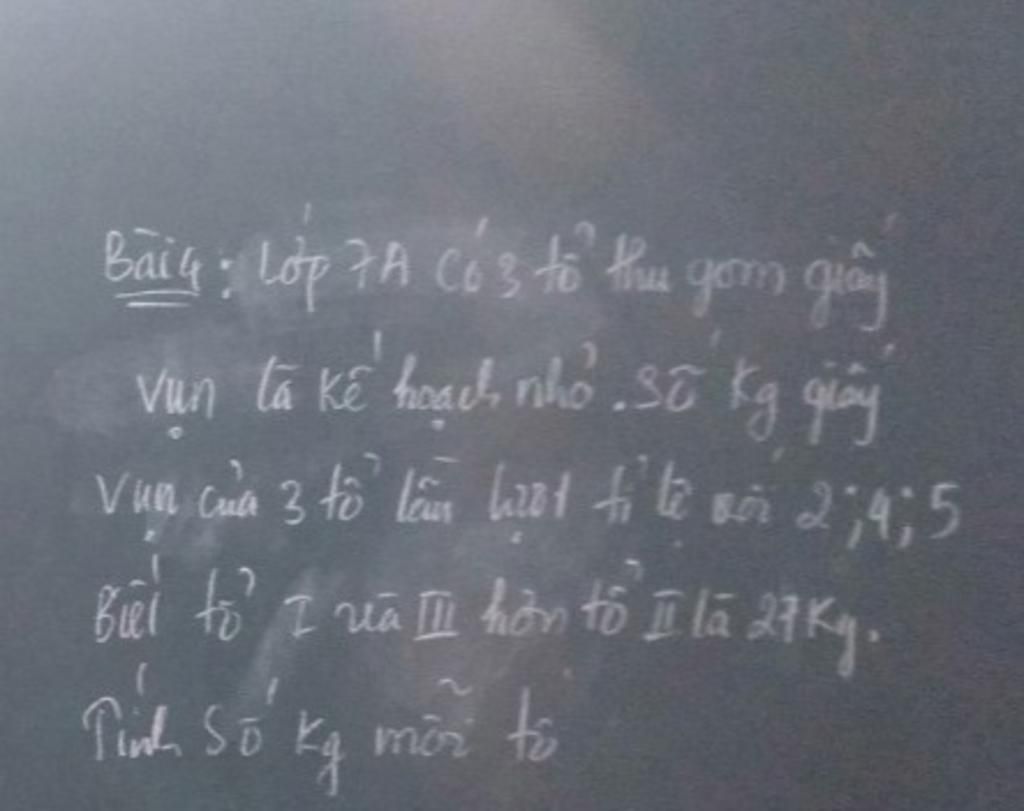 Bài 4: Lớp 7A có 3 tổ thu gom giấy
vụn là kế hoạch nhỏ. Số kg giấy
vụn của 3 tổ lần lượt tỉ lệ với 2; 4; 5
Biết tổ I và III hơn tổ II là 27Kg.
Tính số kg mỗi tổ